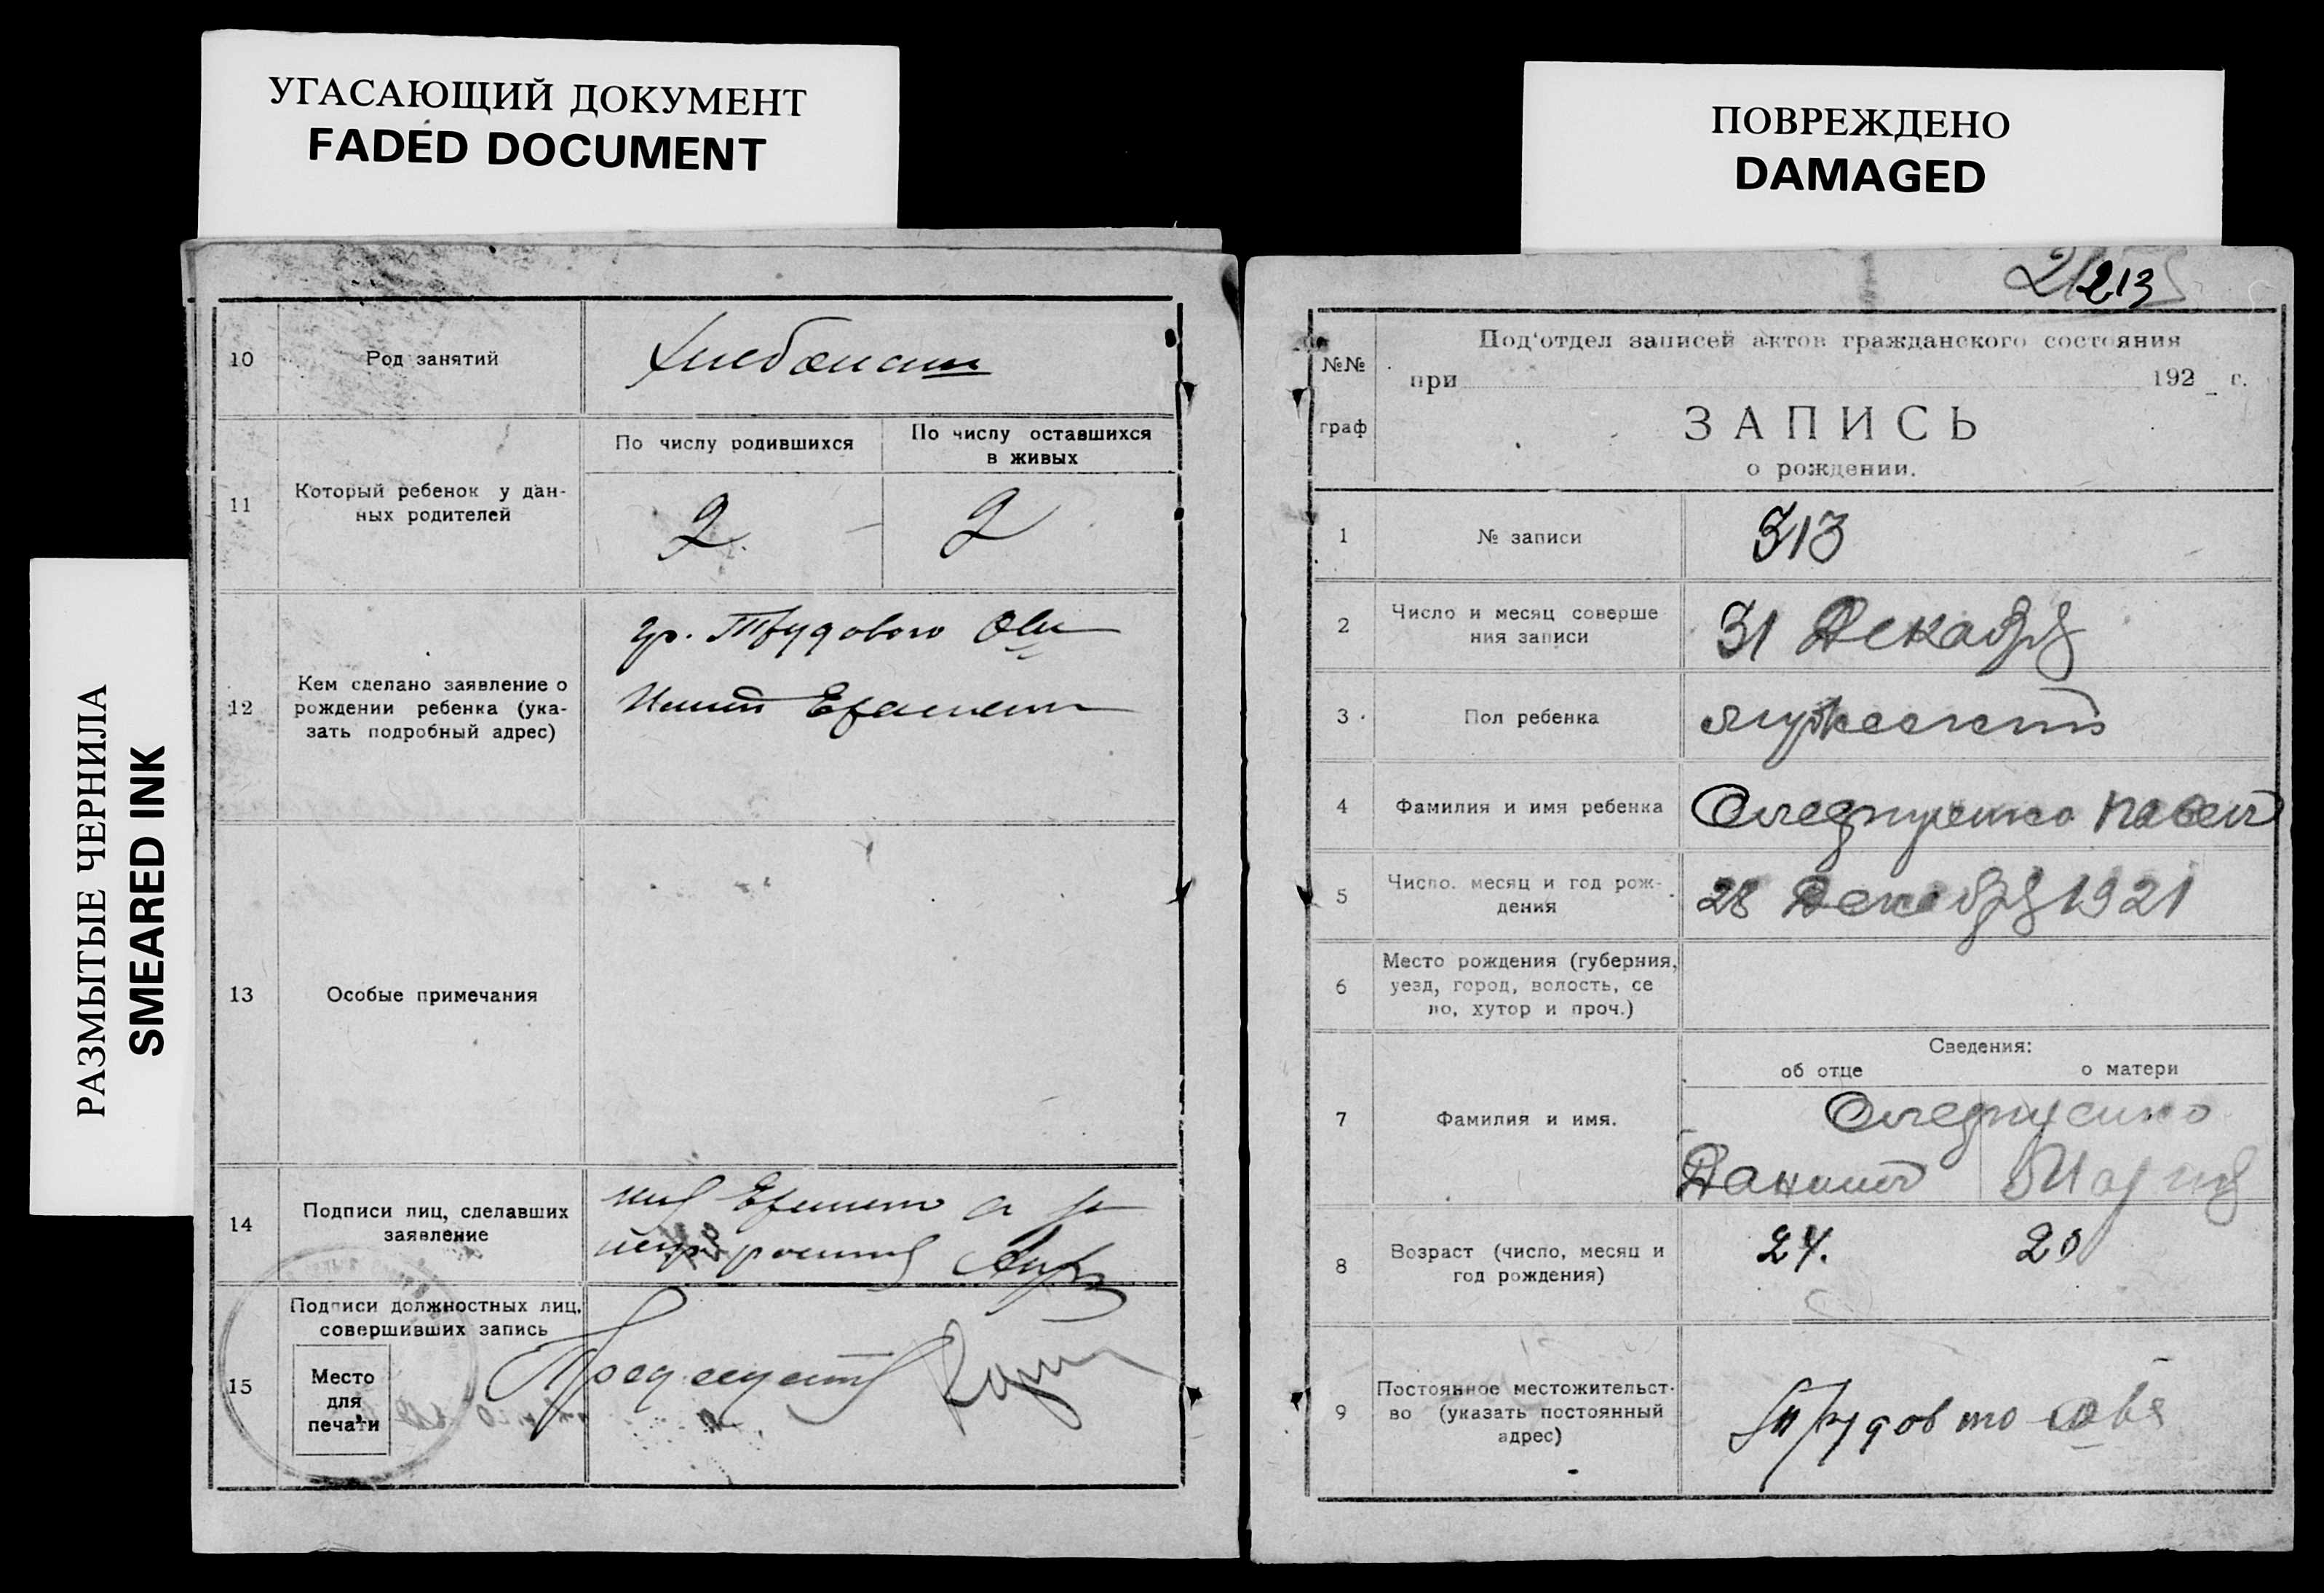 УГАСАЮЩИЙ ДОКУМЕНТ
FADED DOCUMENT
РАЗМЫТЫЕ ЧЕРНИЛА
SMEARED INK
10
Род занятий
11
Который ребенок у дан-
ных родителей
По числу родившихся
По числу оставшихся
в живых
2
2
12
Кем сделано заявление о
рождении ребенка (ука-
зать подробный адрес)
гр. Трудового
13
Особые примечания
14
Подписи лиц, сделавших
заявление
15
Подписи должностных лиц,
совершивших запись
Место
для
печати
ПОВРЕЖДЕНО
DAMAGED
213
№№
граф
Под'отдел записей актов гражданского состояния
при 192 г.
ЗАПИСЬ
о рождении.
1
№ записи
313
2
Число и месяц соверше
ния записи
31 Декабря
3
Пол ребенка
мужеского
4
Фамилия и имя ребенка
Павел
5
Число, месяц и год рож-
дения
28 Декабря 1921
6
Место рождения (губерния,
уезд, город, волость, се
ло, хутор и проч.)
Сведения:
об отце
о матери
7
Фамилия и имя.
Даниил
Мария
8
Возраст (число, месяц и
год рождения)
24.
20
9
Постоянное местожительст-
во (указать постоянный
адрес)